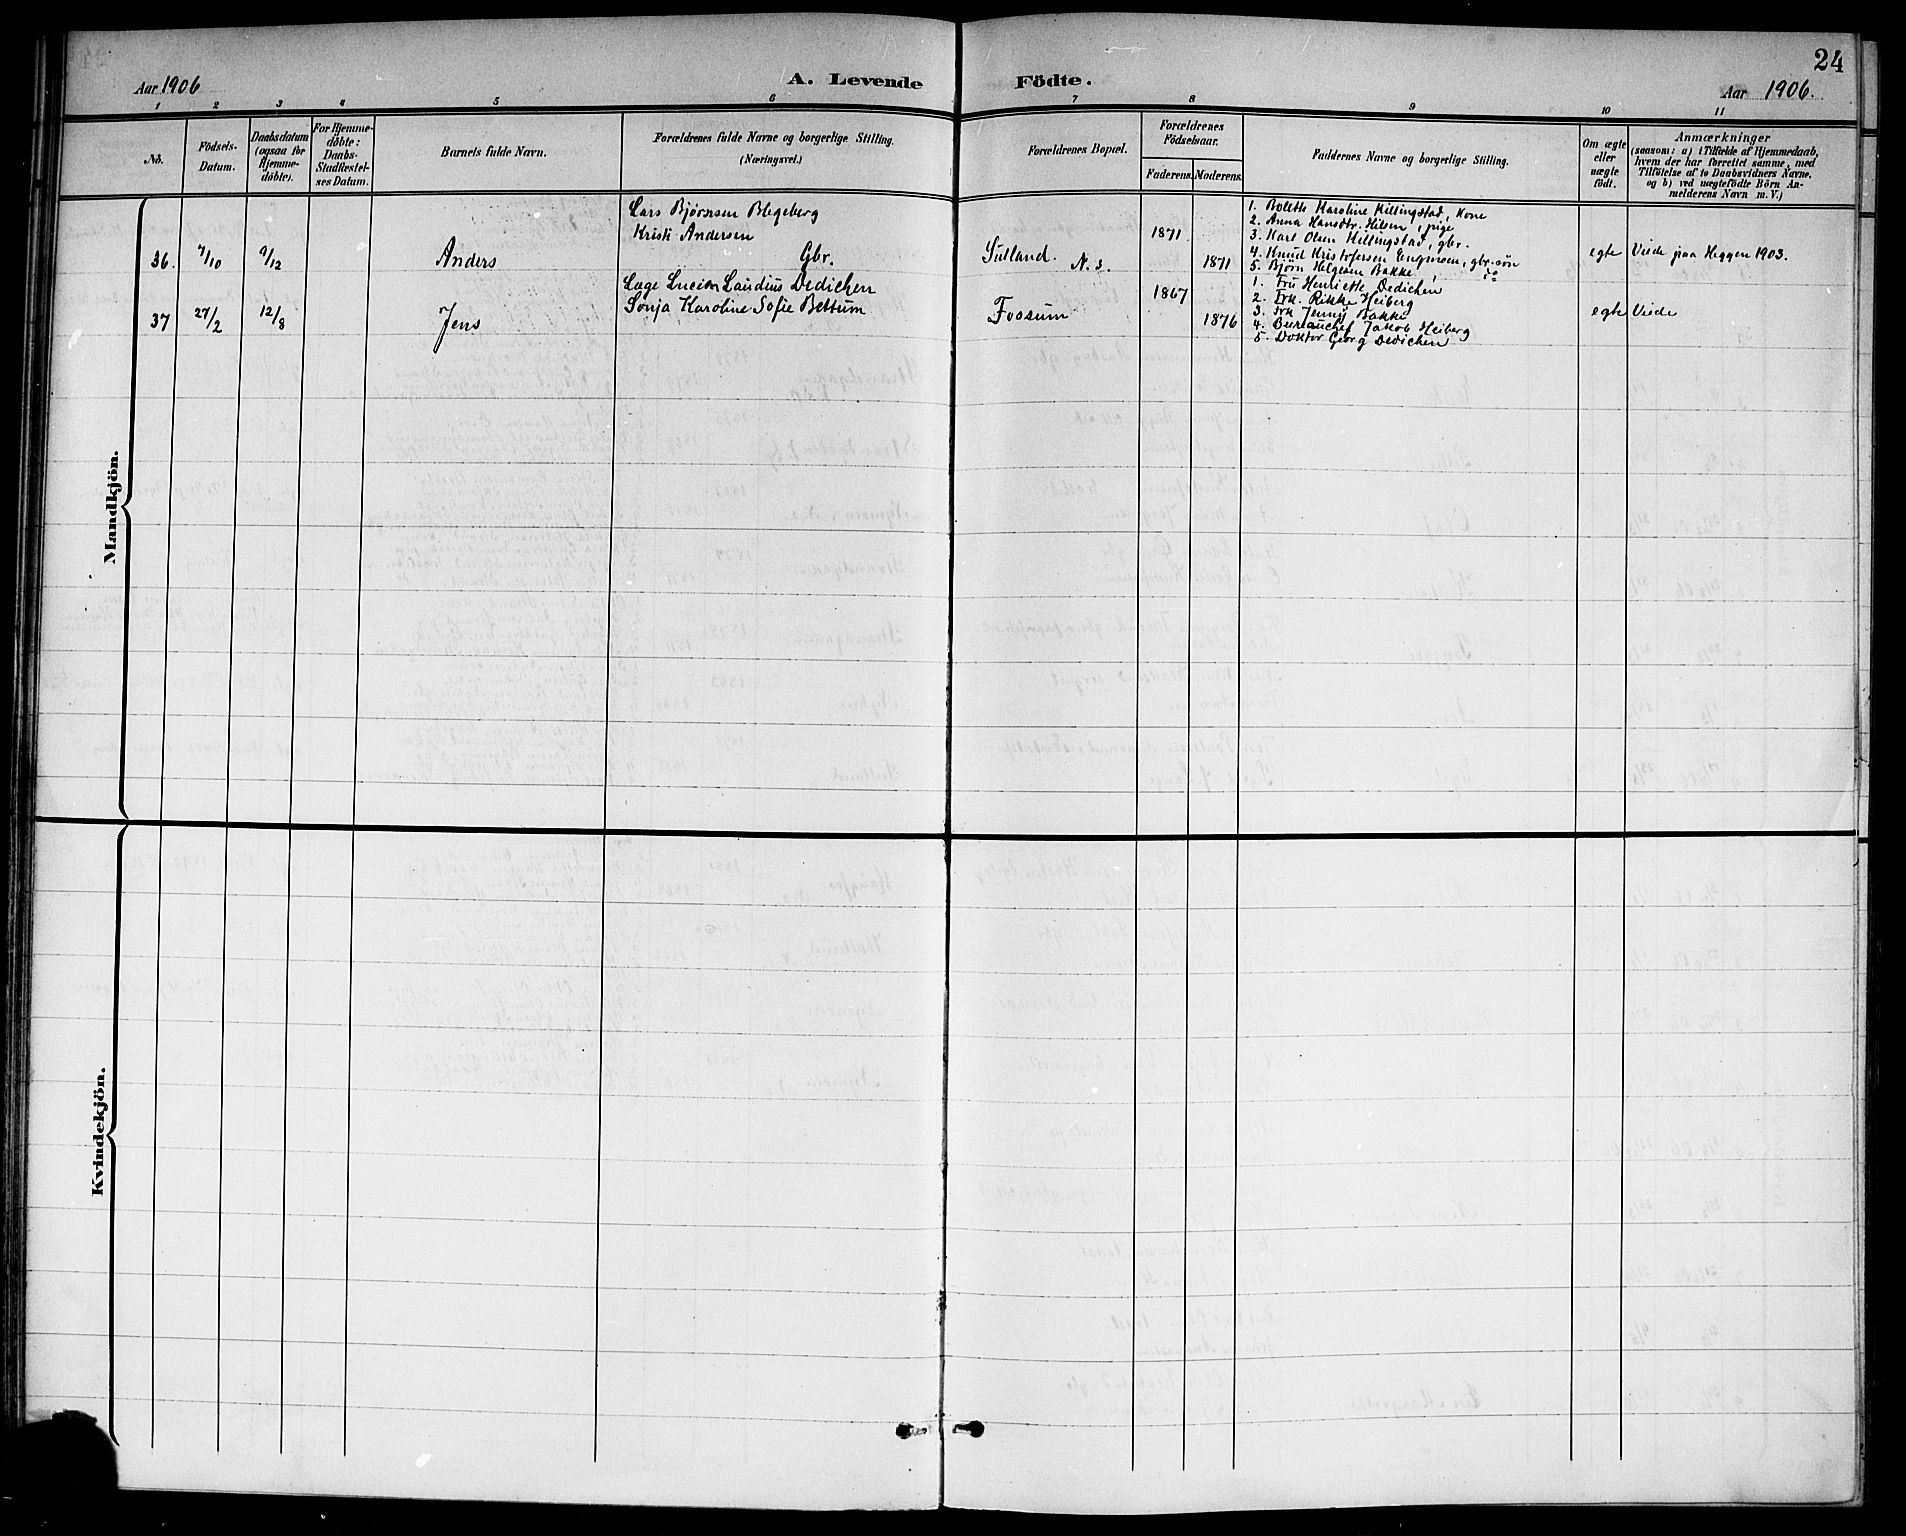 24
Aar 1906
A. Levende
Födte.
Aar 1906.
1 2 3 4 5 6 7 8 9 10 11
No.
Födsels-
Datum.
Daabsdatum
(ogsaa for
Hjemme-
döbte).
For Hjemme-
döbte:
Daabs-
Stadfæstel-
ses Datum.
Barnets fulde Navn.
Forældrenes fulde Navne og borgerlige Stilling.
(Næringsvei.)
Forældrenes Bopæl.
Forældrenes
Födselsaar.
Faderens.
Moderens.
Faddernes Navne og borgerlige Stilling.
Om ægte
eller
uægte
födt.
Anmærkninger
(saasom: a) i Tilfælde af Hjemmedaab,
hvem der har forrettet samme, med
Tilföielse af to Daabsvidners Navne.
og b) ved uægtefödte Börn An-
melderens Navn m. V.)
Mandkjön.
36. 7/10 9/12 Anders
Lars Bjørnsen Blegeberg
Kristi Andersen
Gbr.
Sutland. N. s.
1871
1871
1. Bolette Karoline Killingstad, Kone
2. Anna Hansdtr. Hilsen, pige
3. Karl Olsen Killingstad, gbr.
4. Knud Kristofersen Engmoen, gbr.søn
5. Bjørn Helgesen Bakke, do
egte Viede paa Heggen 1903.
37 27/2 12/8 Jens
Læge Lucien Laudius Dedichen
Sonja Karoline Sofie Bettum
Fossum
1867
1876
1. Fru Henriette Dedichen
2. Frk. Rikke Heiberg
3. Frk Jenny Bakke
4. Bureauchef Jakob Heiberg
5. Doktor Georg Dedichen
egte Viede
Kvindekjön.